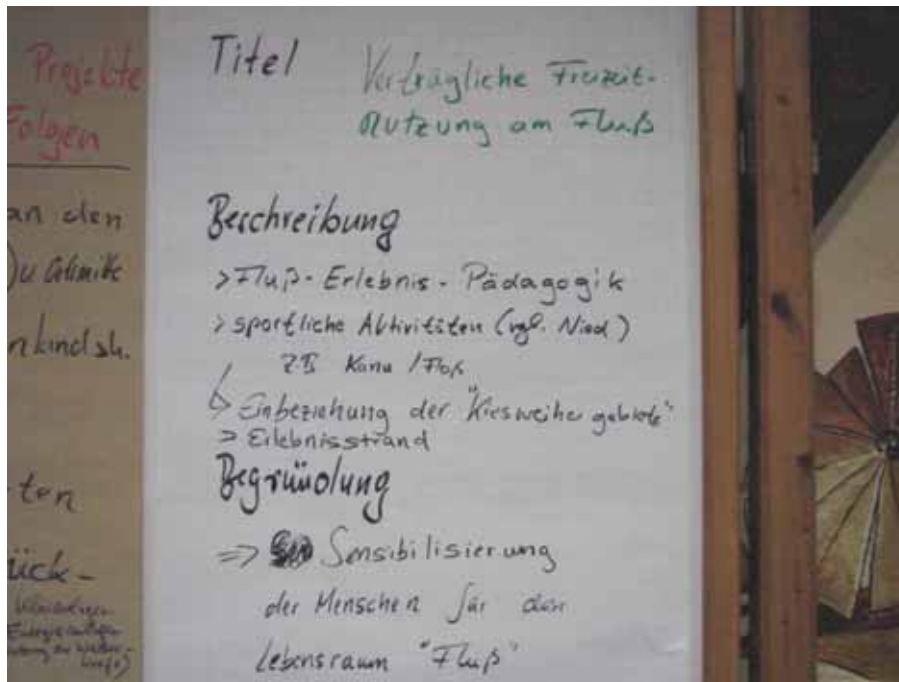 Projekte
Folgen
an den
nkindsh.
ten
ück-
Titel
Verträgliche Freizeit-
Nutzung am Fluß
Beschreibung
> Fluß-Erlebnis-Pädagogik
> sportliche Aktivitäten (vgl. Nied)
z.B Kanu / Floß
> Einbeziehung der "Kiesweihergebiete"
> Erlebnisstrand
Begründung
=> Sensibilisierung
der Menschen für den
Lebensraum "Fluß"